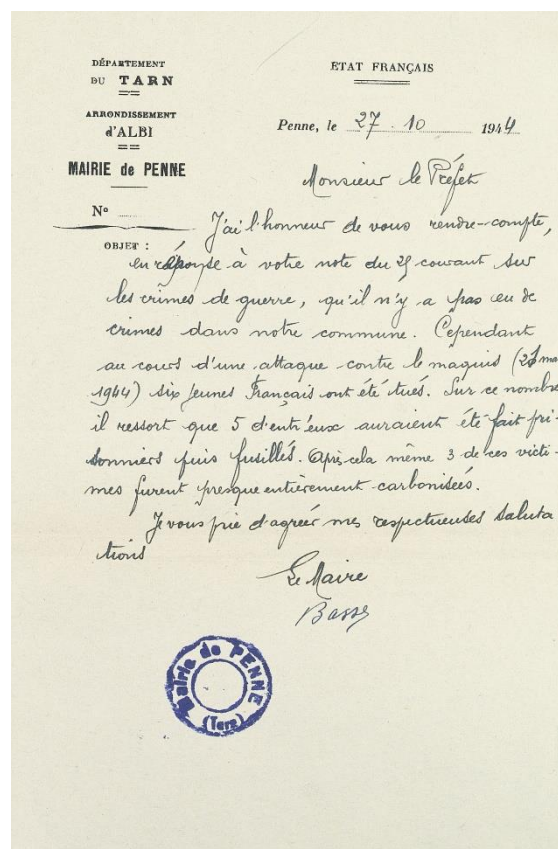 DÉPARTEMENT
DU TARN
ARRONDISSEMENT
d'ALBI
MAIRIE de PENNE
N°
OBJET :
ETAT FRANÇAIS
Penne, le 27 . 10 1944
Monsieur le Préfet
J'ai l'honneur de vous rendre-compte,
en réponse à votre note du courant sur
les crimes de guerre, qu'il n'y a pas eu de
crimes dans notre commune. Cependant
au cours d'une attaque contre le maquis (
1944) six jeunes Français ont été tués. Sur ce nombre
il ressort que 5 d'entr'eux auraient été fait pri-
sonniers puis fusillés. Après cela même 3 de ces victi-
mes furent presque entièrement carbonisées.
Je vous prie d'agréer mes respectueuses saluta
tions
Le Maire
Mairie de PENNE
(Tarn)